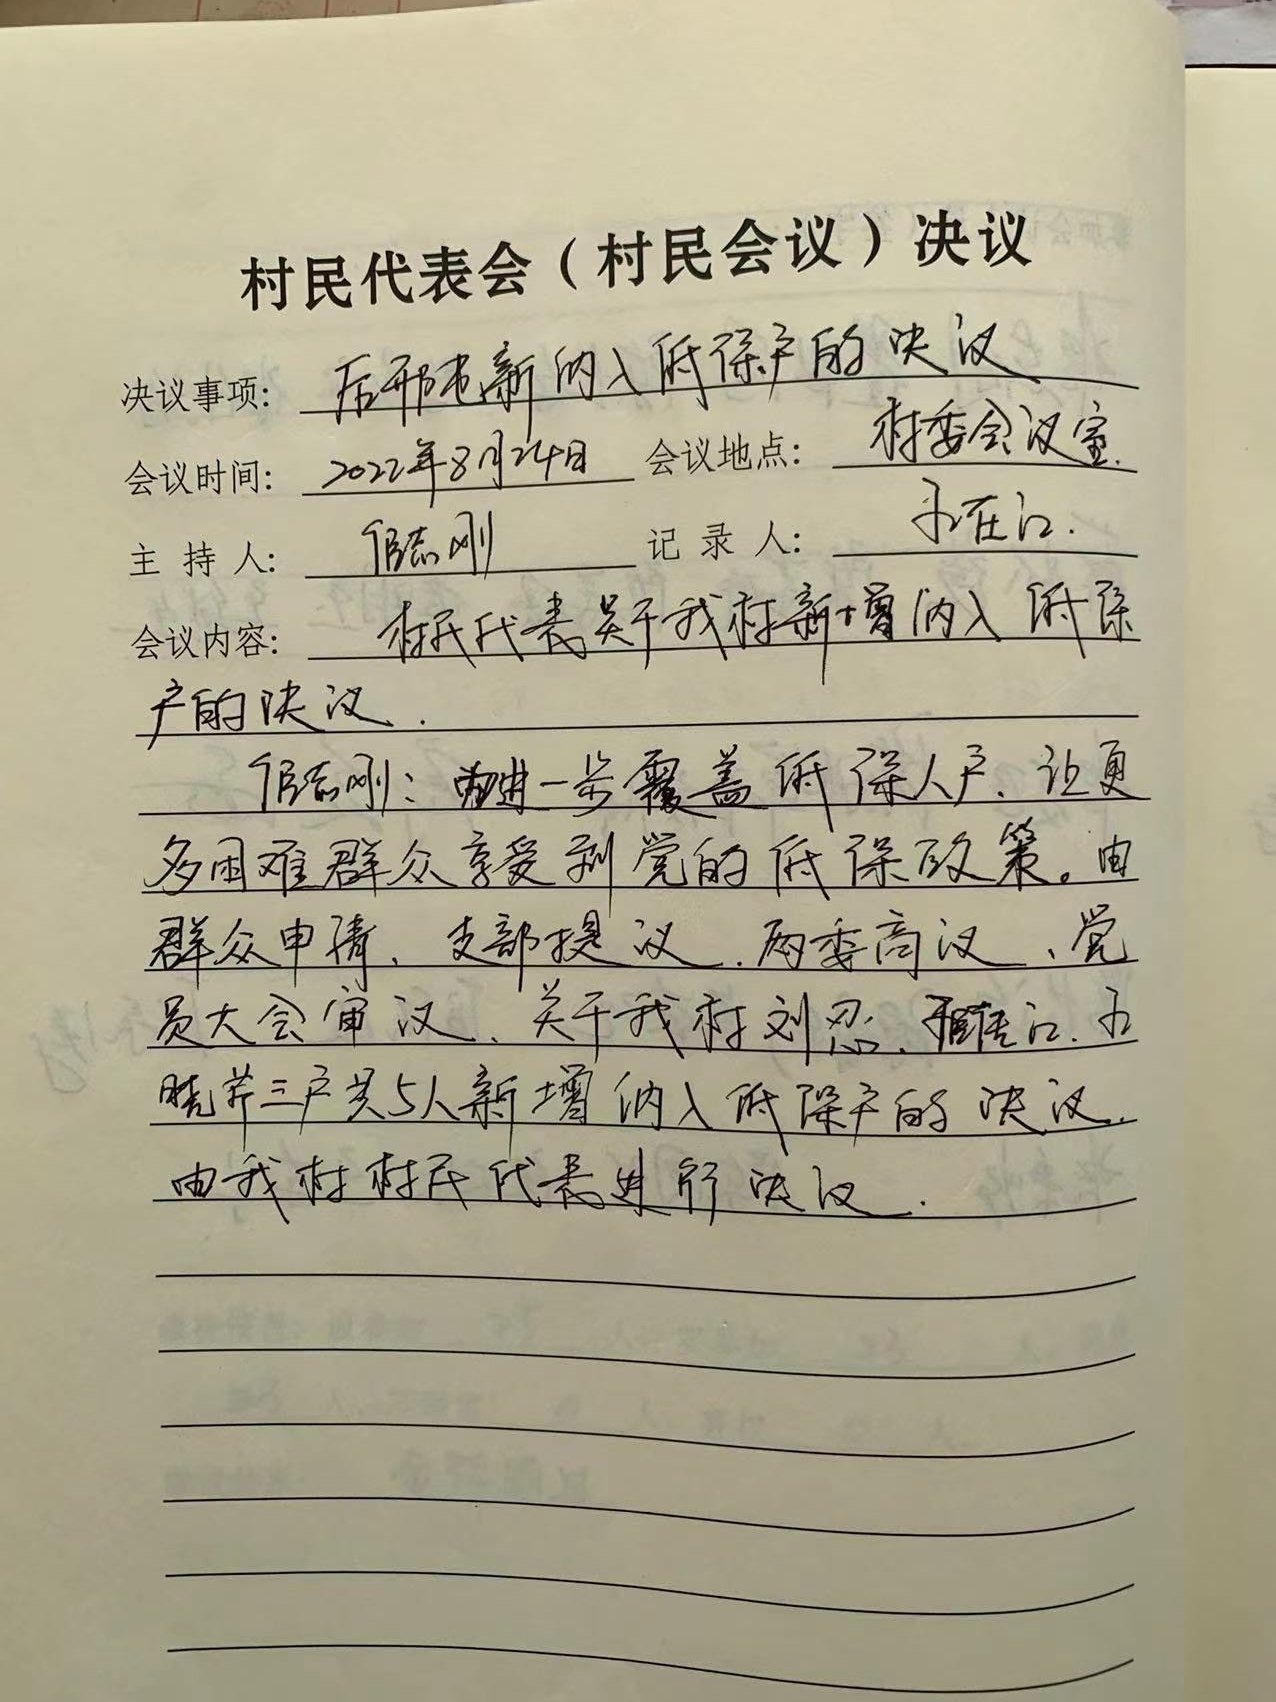 村民代表会（村民会议）决议
决议事项： 后邢屯新纳入低保户的决议
会议时间： 2022年8月24日 会议地点： 村委会议室.
主 持 人： 志刚 记 录 人： 在江.
会议内容： 村民代表关于我村新增纳入低保
户的决议.
志刚：为进一步覆盖低保人户、让更
多困难群众享受到党的低保政策。由
群众申请、支部提议、两委商议、党
员大会审议、关于我村刘忍、江、
晓芹三户共5人新增纳入低保户的决议.
由我村村民代表进行决议.